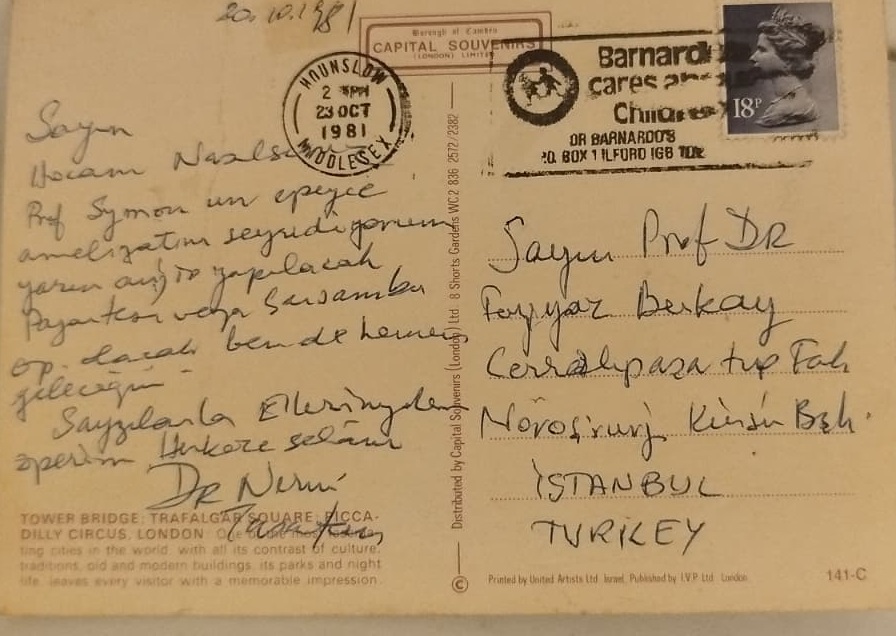 20.10.1981
Borough of Camden
CAPITAL SOUVENIRS
(LONDON) LIMITED
HOUNSLOW
2 PM
23 OCT
1981
MIDDLESEX
Barnardo
cares about
Children
DR BARNARDO'S
P.O. BOX 1 ILFORD IG6 1
18P
Sayın
Hocam
Prof Symon un epeyce
seyrediyorum
yarın yapılacak
Pazartesi veya
op. olacak ben de hemen
geleceğim.
Saygılarla Ellerinizden
öperim Herkeze selâm
DR
TOWER BRIDGE: TRAFALGAR SQUARE: PICCA-
DILLY CIRCUS, LONDON
ting cities in the world, with all its contrast of culture,
traditions, old and modern buildings, its parks and night
life, leaves every visitor with a memorable impression.
Distributed by Capital Souvenirs (London) Ltd 8 Shorts Gardens WC2 836 2572/2382
©
Sayın Prof DR
Berkay
Cerrahpaşa tıp Fak
Nöroşirurji Kürsü Bşk.
İSTANBUL
TURKEY
Printed by United Artists Ltd Israel, Published by I.V.P Ltd London
141-C